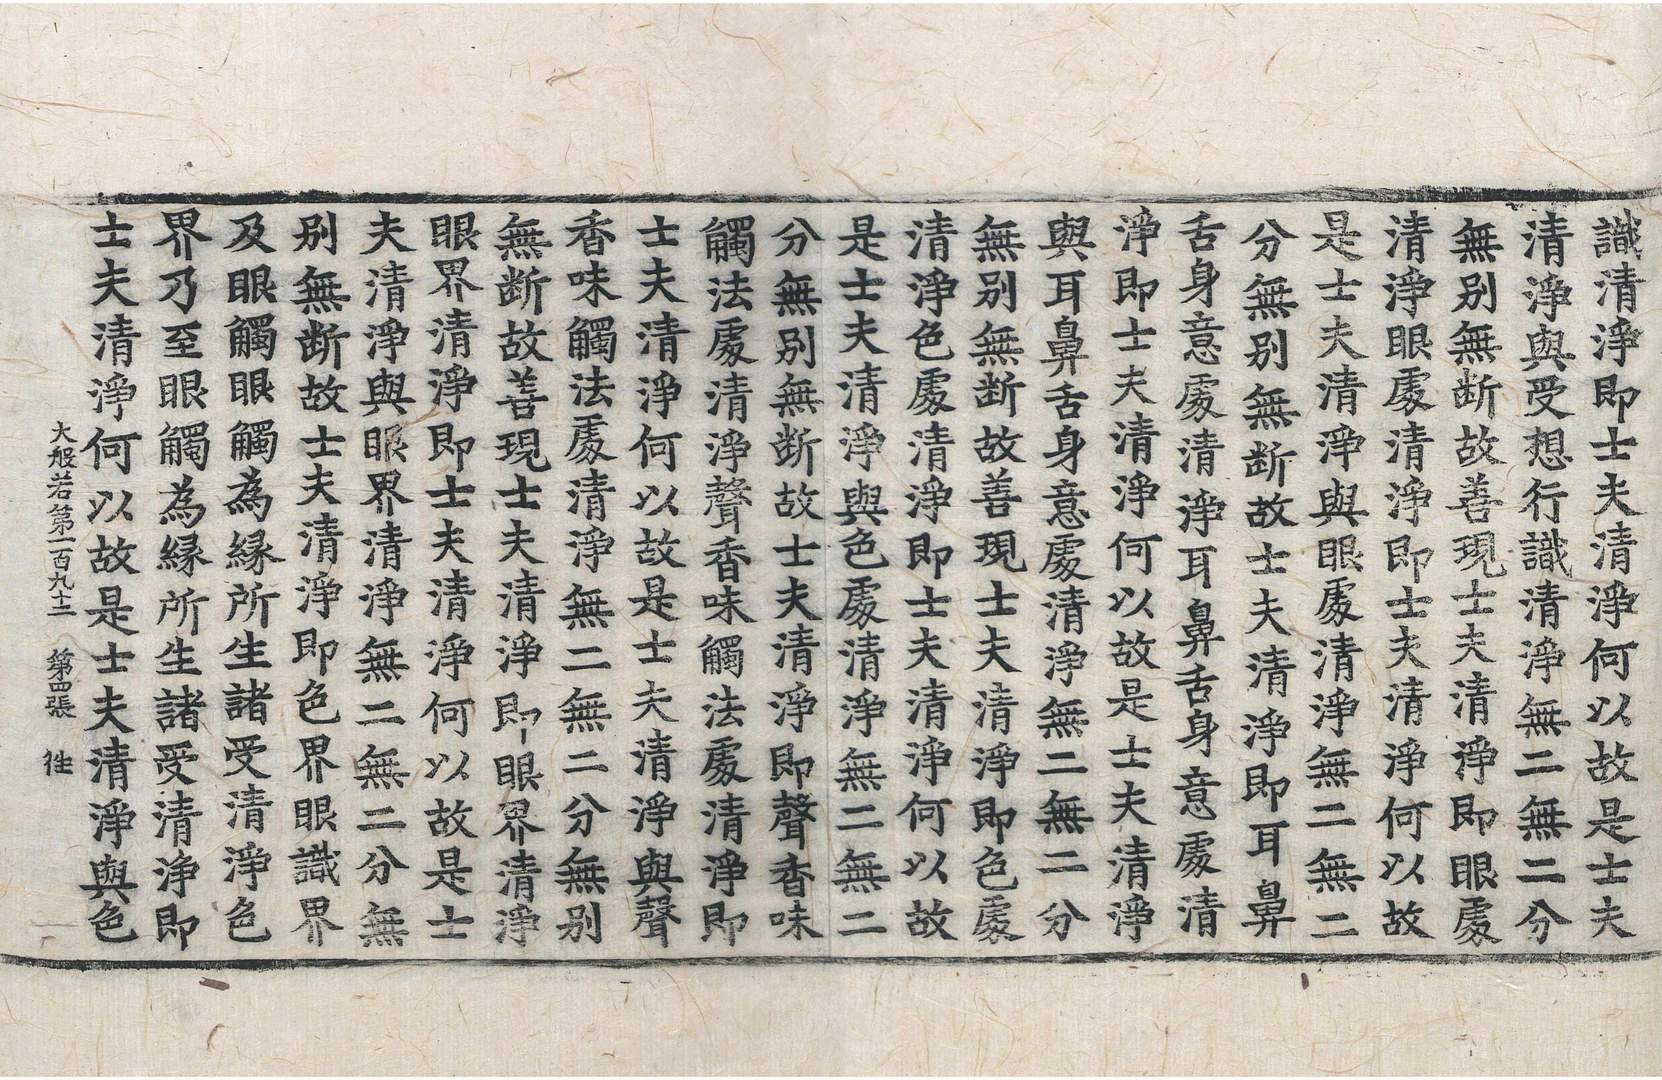 識清淨即士夫清淨何以故是士夫
清淨與受想行識清淨無二無二分
無别無断故善現士夫清淨即眼處
清淨眼處清淨即士夫清淨何以故
是士夫清淨與眼處清淨無二無二
分無别無断故士夫清淨即耳鼻
舌身意處清淨耳鼻舌身意處清
淨即士夫清淨何以故是士夫清淨
與耳鼻舌身意處清淨無二無二分
無别無断故善現士夫清淨即色處
清淨色處清淨即士夫清淨何以故
是士夫清淨與色處清淨無二無二
分無别無断故士夫清淨即聲香味
觸法處清淨聲香味觸法處清淨即
士夫清淨何以故是士夫清淨與聲
香味觸法處清淨無二無二分無别
無断故善現士夫清淨即眼界清淨
眼界清淨即士夫清淨何以故是士
夫清淨與眼界清淨無二無二分無
别無断故士夫清淨即色界眼識界
及眼觸眼觸為縁所生諸受清淨色
界乃至眼觸為縁所生諸受清淨即
士夫清淨何以故是士夫清淨與色
大般若第一百九十二 第四張 徃